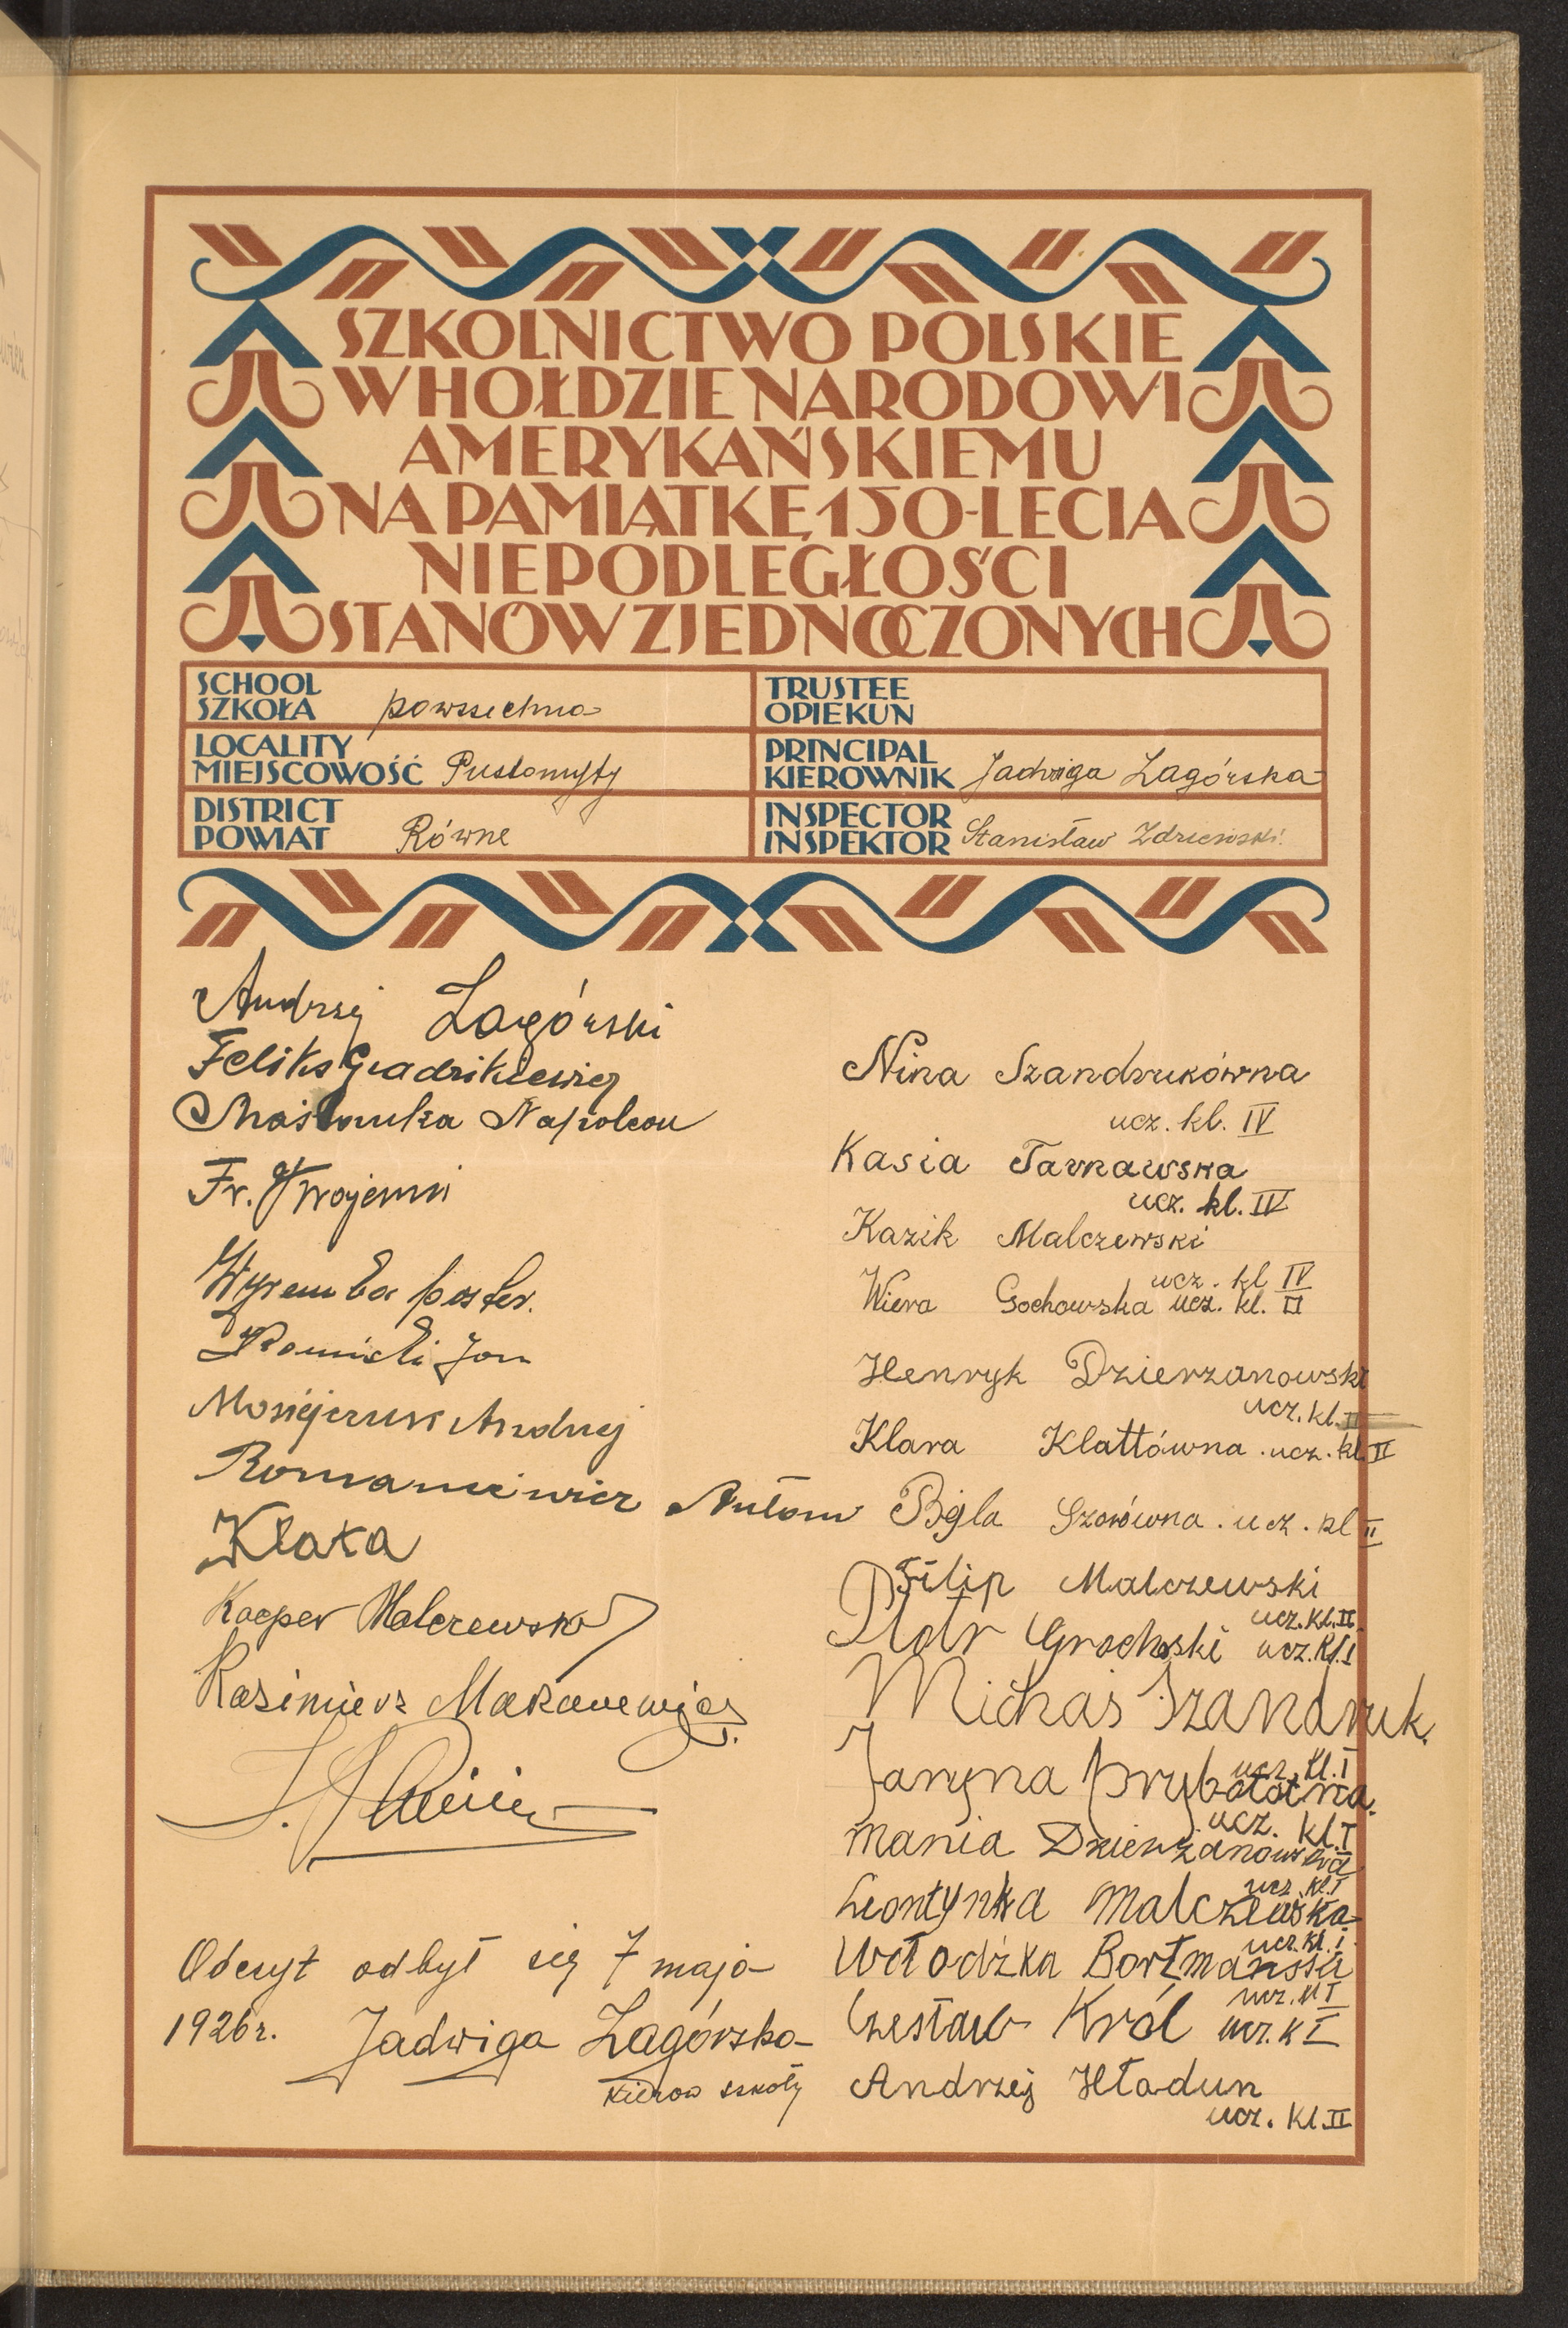 SZKOLNICTWO POLSKIE
W HOŁDZIE NARODOWI
AMERYKAŃSKIEMU
NA PAMIĄTKĘ 150-LECIA
NIEPODLEGŁOŚCI
STANÓW ZJEDNOCZONYCH
SCHOOL
SZKOŁA powszechna
TRUSTEE
OPIEKUN
LOCALITY
MIEJSCOWOŚĆ Pustomyty
PRINCIPAL
KIEROWNIK Jadwiga Zagórska
DISTRICT
POWIAT Równe
INSPECTOR
INSPEKTOR Stanisław
Andrzej Zagórski
Feliks
Napoleon
Fr.
Wyremba poster.
Jan
Andrzej
Romaniewicz Antoni
Kłoka
Kacper Malczewski
Kasimierz Makarewicz
Odczyt odbył się 7 maja
1926 r. Jadwiga Zagórska
kierow szkoły
Nina Szandrukówna
ucz. kl. IV
Kasia Tarnawska
ucz. kl. IV
Kazik Malczewski
ucz. kl IV
Wiera Gochowska ucz. kl. II
Henryk Dzierzanowski
ucz. kl. II
Klara Klattówna . ucz. kl. II
ucz. kl II
Filip Malczewski
ucz. kl. II
Piotr Grochoski ucz. kl. I
Michaś Szandruk.
ucz. kl. I
Jaryna Prybołotna.
ucz. kl. I
Mania Dzierżanowska
ucz. kl. I
Leontynka Malczewska
ucz. kl. I
Włodźka
ucz. kl I
Czesław Król ucz. k I
Andrzej Hładun
ucz. kl. II